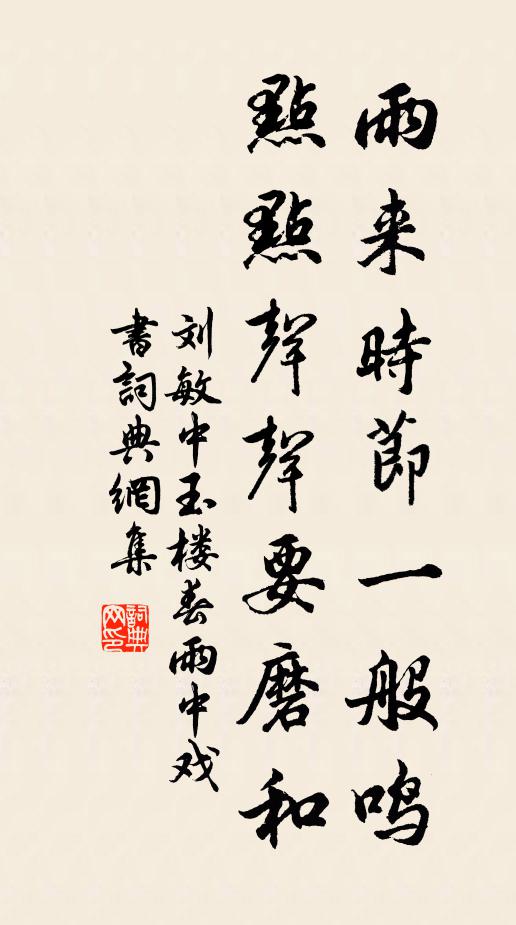 雨来時節一般鸣
點點聲聲要磨和
刘敏中玉楼春雨中戏
書詞典網集
詞典网印